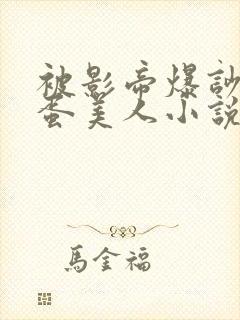 被影帝爆
蛋美人小說
馬金福